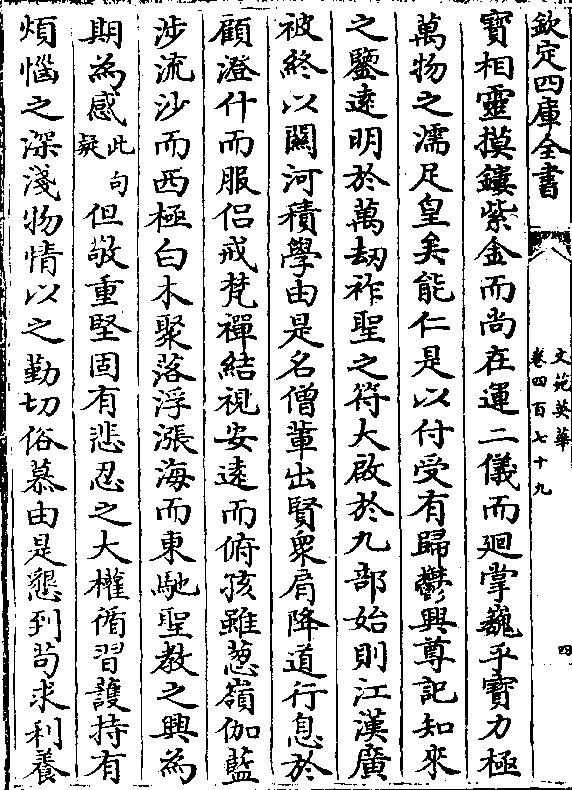 欽定四庫全書
文苑英華
卷四百七十九
四
寶相靈摸鏤紫金而尚在運二儀而廻掌巍乎寶力極
萬物之濡足皇矣能仁是以付受有歸鬱興尊記知來
之鑒逺明於萬劫祚聖之符大啟於九部始則江漢廣
被終以關河積學由是名僧軰出賢衆肩降道行息於
顧澄什而服侣戒梵禪結視安逺而俯孩雖葱嶺伽藍
渉流沙而西極白木聚落浮漲海而東馳聖教之興為
期為感此句疑但敬重堅固有悲忍之大權循習䕶持有
煩惱之深淺物情以之勤切俗慕由是懇到苟求利養